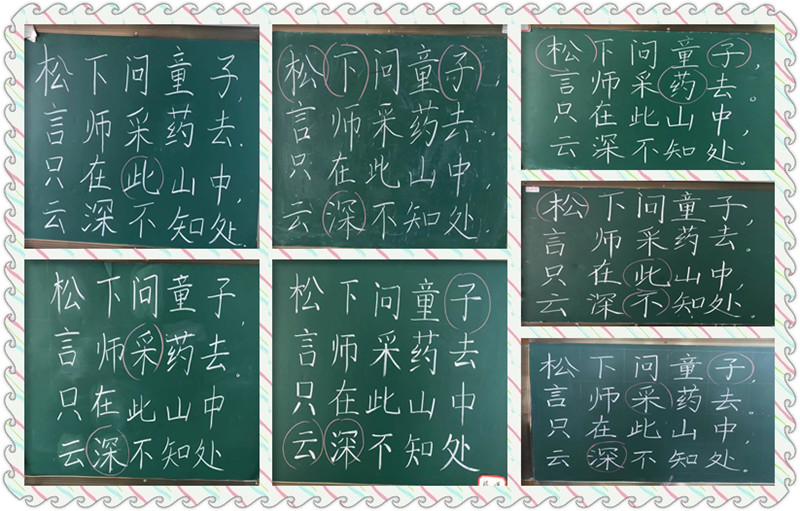 松下问童子，
言师采药去。
只在此山中，
云深不知处。
松下问童子，
言师采药去。
只在此山中，
云深不知处。
松下问童子，
言师采药去。
只在此山中，
云深不知处。
松下问童子，
言师采药去。
只在此山中，
云深不知处。
松下问童子，
言师采药去。
只在此山中
云深不知处
松下问童子
言师采药去
只在此山中
云深不知处
松下问童子，
言师采药去。
只在此山中，
云深不知处。